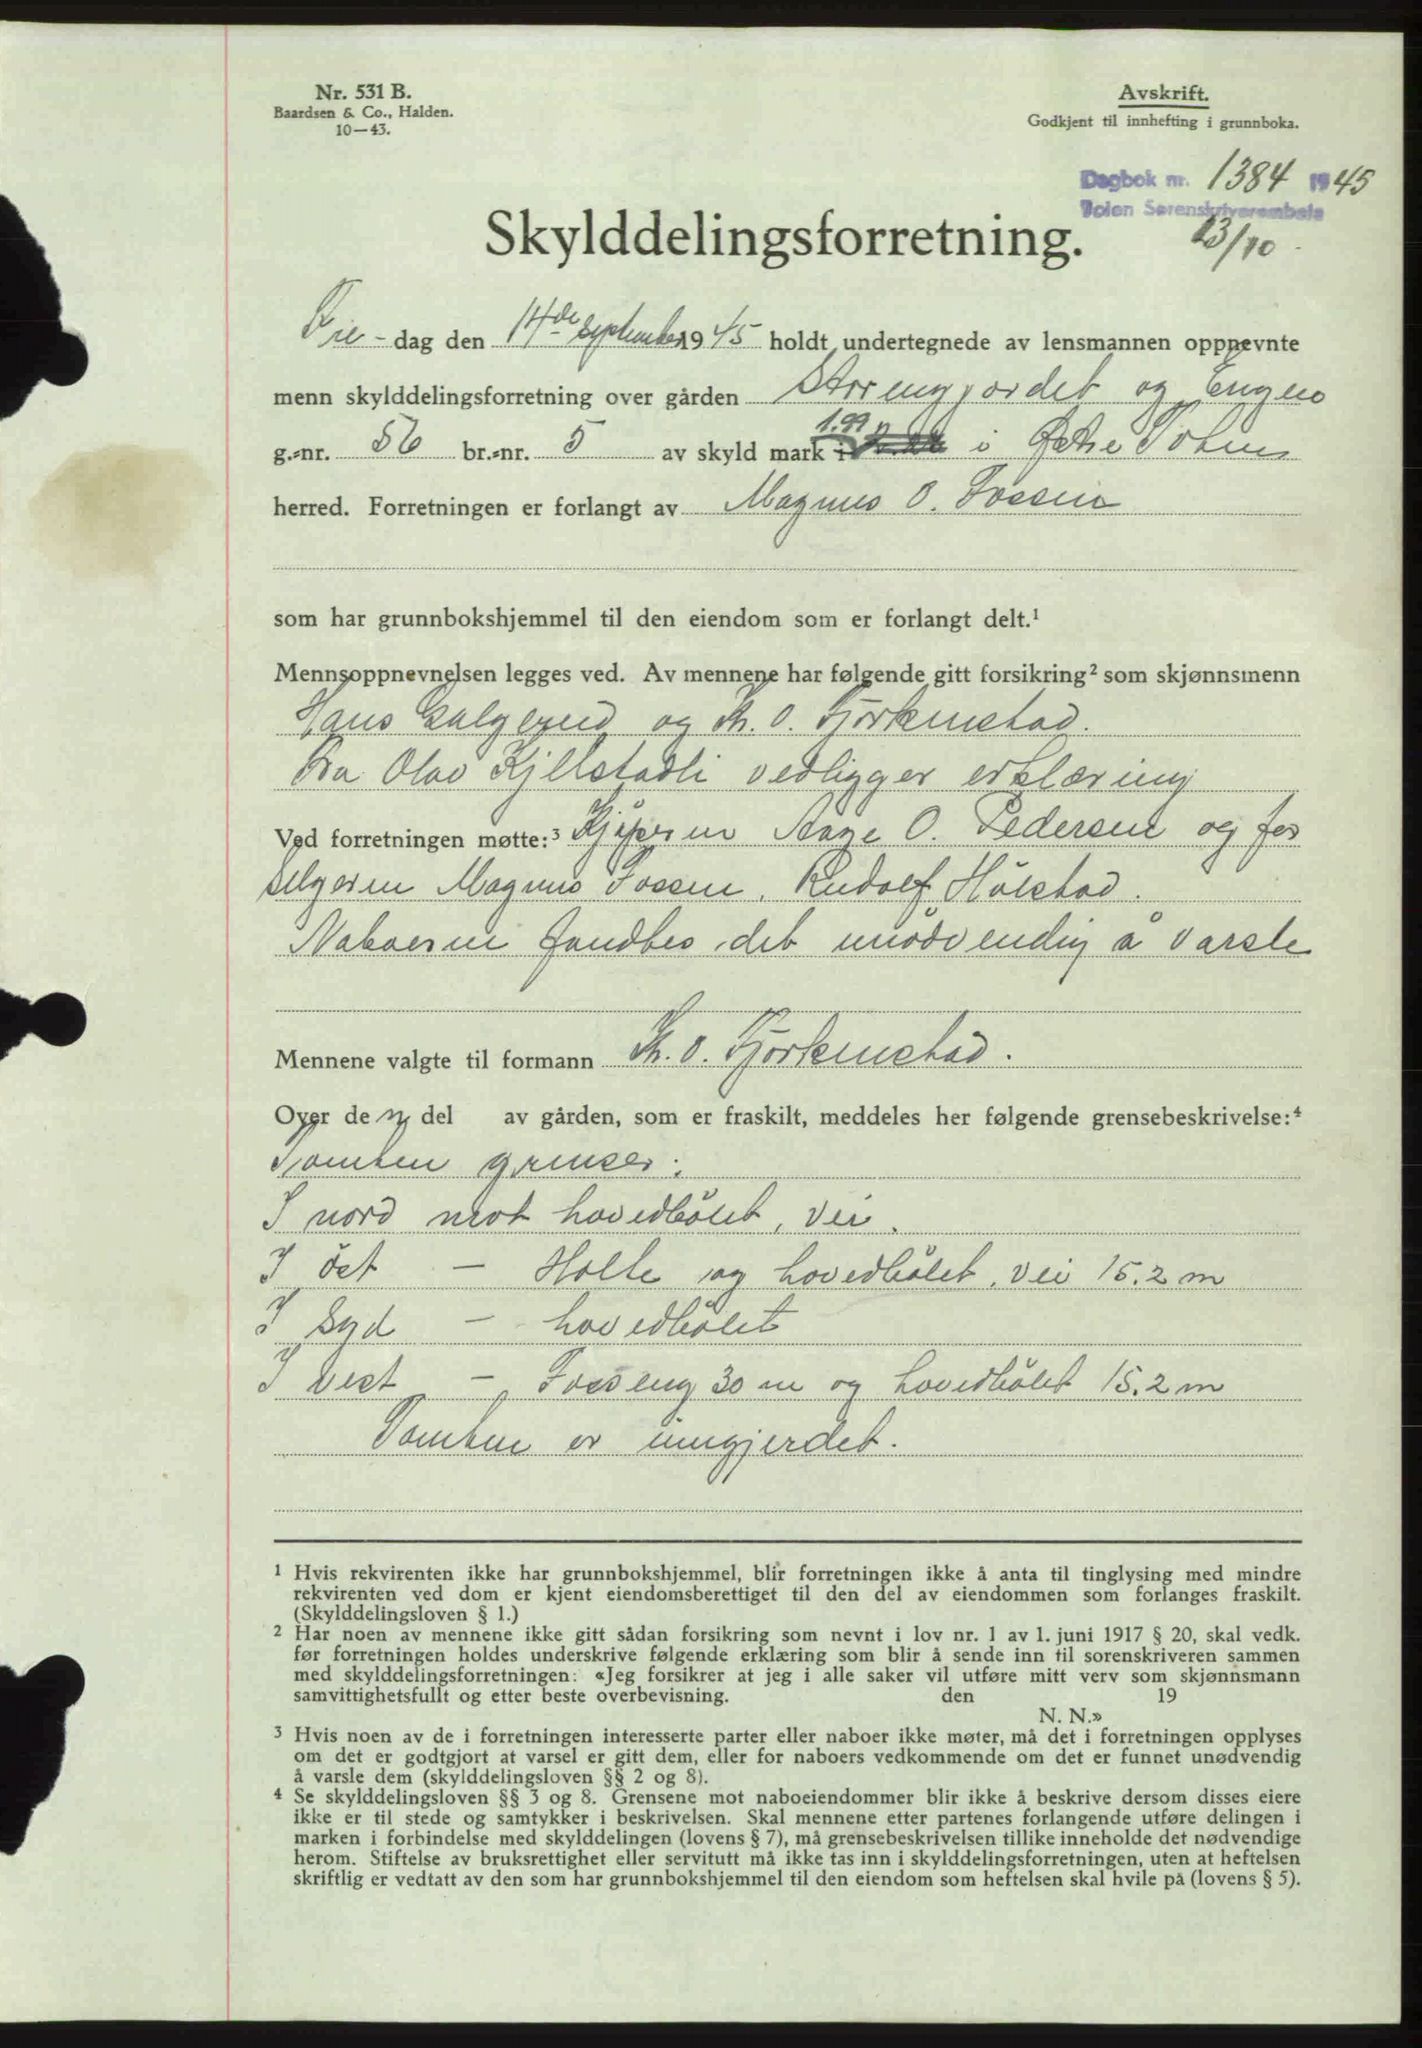 Nr. 531 B.
Baardsen & Co., Halden.
10—43.
Avskrift.
Godkjent til innhefting i grunnboka.
Dagbok nr. 1384 1945
Toten Sorenskriverembete
13/10
Skylddelingsforretning.
Fre-dag den 14de september 1945 holdt undertegnede av lensmannen oppnevnte
menn skylddelingsforretning over gården Storengjordet og Engen
g.-nr. 56 br.-nr. 5 av skyld mark 1.99 i Østre Toten
herred. Forretningen er forlangt av Magnus O. Fossen
som har grunnbokshjemmel til den eiendom som er forlangt delt.¹
Mennsoppnevnelsen legges ved. Av mennene har følgende gitt forsikring² som skjønnsmenn
Hans Galgerud og Th. O. Fjørkenstad.
Fra Olav Kjelstadli vedligger erklæring
Ved forretningen møtte:³ Kjøperen Aage O. Pedersen og for
selgeren Magnus Fossen, Rudolf Hólstad.
Naboerne fandtes det unødvendig å varsle
Mennene valgte til formann Th. O. Fjørkenstad.
Over den del av gården, som er fraskilt, meddeles her følgende grensebeskrivelse:⁴
Tomten grenser:
I nord mot hovedbølet, vei.
I öst — Holte og hovedbölet, vei 15.2 m
I syd — hovedbölet
I vest — Fosseng 30 m og hovedbölet 15.2 m
Tomten er inngjerdet.
¹ Hvis rekvirenten ikke har grunnbokshjemmel, blir forretningen ikke å anta til tinglysing med mindre
rekvirenten ved dom er kjent eiendomsberettiget til den del av eiendommen som forlanges fraskilt.
(Skylddelingsloven § 1.)
² Har noen av mennene ikke gitt sådan forsikring som nevnt i lov nr. 1 av 1. juni 1917 § 20, skal vedk.
før forretningen holdes underskrive følgende erklæring som blir å sende inn til sorenskriveren sammen
med skylddelingsforretningen: «Jeg forsikrer at jeg i alle saker vil utføre mitt verv som skjønnsmann
samvittighetsfullt og etter beste overbevisning. den 19
N. N.»
³ Hvis noen av de i forretningen interesserte parter eller naboer ikke møter, må det i forretningen opplyses
om det er godtgjort at varsel er gitt dem, eller for naboers vedkommende om det er funnet unødvendig
å varsle dem (skylddelingsloven §§ 2 og 8).
⁴ Se skylddelingsloven §§ 3 og 8. Grensene mot naboeiendommer blir ikke å beskrive dersom disses eiere
ikke er til stede og samtykker i beskrivelsen. Skal mennene etter partenes forlangende utføre delingen i
marken i forbindelse med skylddelingen (lovens § 7), må grensebeskrivelsen tillike inneholde det nødvendige
herom. Stiftelse av bruksrettighet eller servitutt må ikke tas inn i skylddelingsforretningen, uten at heftelsen
skriftlig er vedtatt av den som har grunnbokshjemmel til den eiendom som heftelsen skal hvile på (lovens § 5).